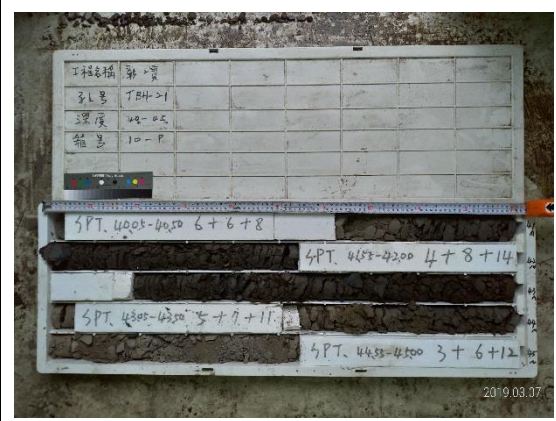 工程名稱
孔號 TBH-21
深度 40-45
箱號 10-9
SPT. 40.05-40.50 6+6+8
SPT. 41.55-42.00 4+8+14
SPT. 43.05-43.50 5+7+11
SPT. 44.55-45.00 3+6+12
2019.03.07